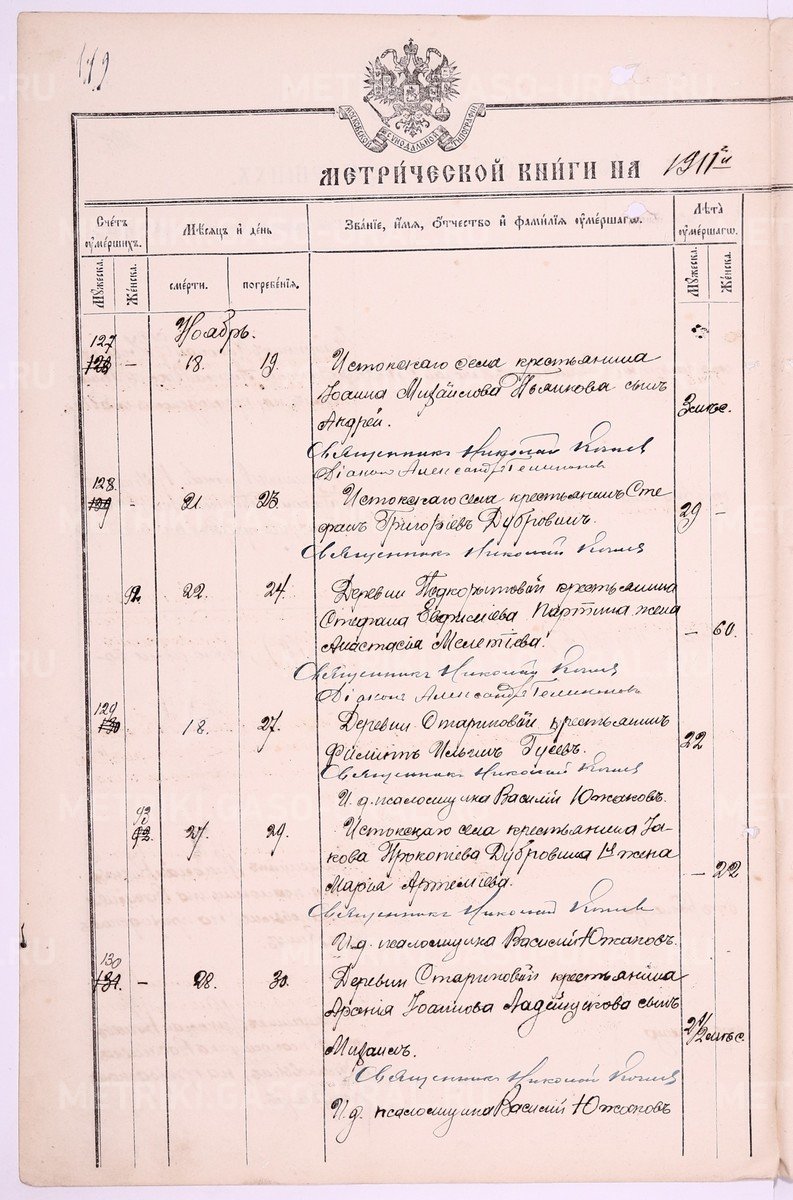 119
МОСКОВСКОЙ СѴНОДАЛЬНОЙ ТИПОГРАФІИ
МЕТРИ́ЧЕСКОЙ КНИ́ГИ НА 1911й
Счетъ ᲂумершихъ.
Мѣсяцъ и день
Званіе, имя, отчество и фамилія ᲂумершагѡ.
Лѣта ᲂумершагѡ.
Мужеска.
Женска.
смерти.
погребенія.
Мужеска.
Женска.
Ноябрь.
127
128 – 18. 19. Истокскаго села крестьянина
Іоанна Михайлова сынъ 3 мѣс.
Андрей.
Священникъ Николай
Діаконъ Александръ
128.
129 - 21. 23. Истокскаго села крестьянинъ Сте
фанъ Григоріевъ Дубровинъ. 29 –
Священникъ Николай
22. 24. Деревни Подкорытовой крестьянина
Стефана Евфиміева Партина жена
Анастасія Мелетіева. – 60.
Священникъ Николай
Діаконъ Александръ
129
130 18. 27. Деревни Стариковой крестьянинъ
Филиппъ Ильинъ Гусевъ. 22
Священникъ Николай
И. д. псаломщика Василій Южаковъ.
93
92. 27. 29. Истокскаго села крестьянина Іа-
кова Прокопіева Дубровина жена
Марія Артеміева. – 22
Священникъ Николай
И. д. псаломщика Василій Южаковъ.
130
131. – 28. 30. Деревни Стариковой крестьянина
Арсенія Іоаннова Ладейщикова сынъ
Михаилъ. 2 1/2 мѣс.
Священникъ Николай
И. д. псаломщика Василій Южаковъ
METRIKI.RASO-URAL.RU